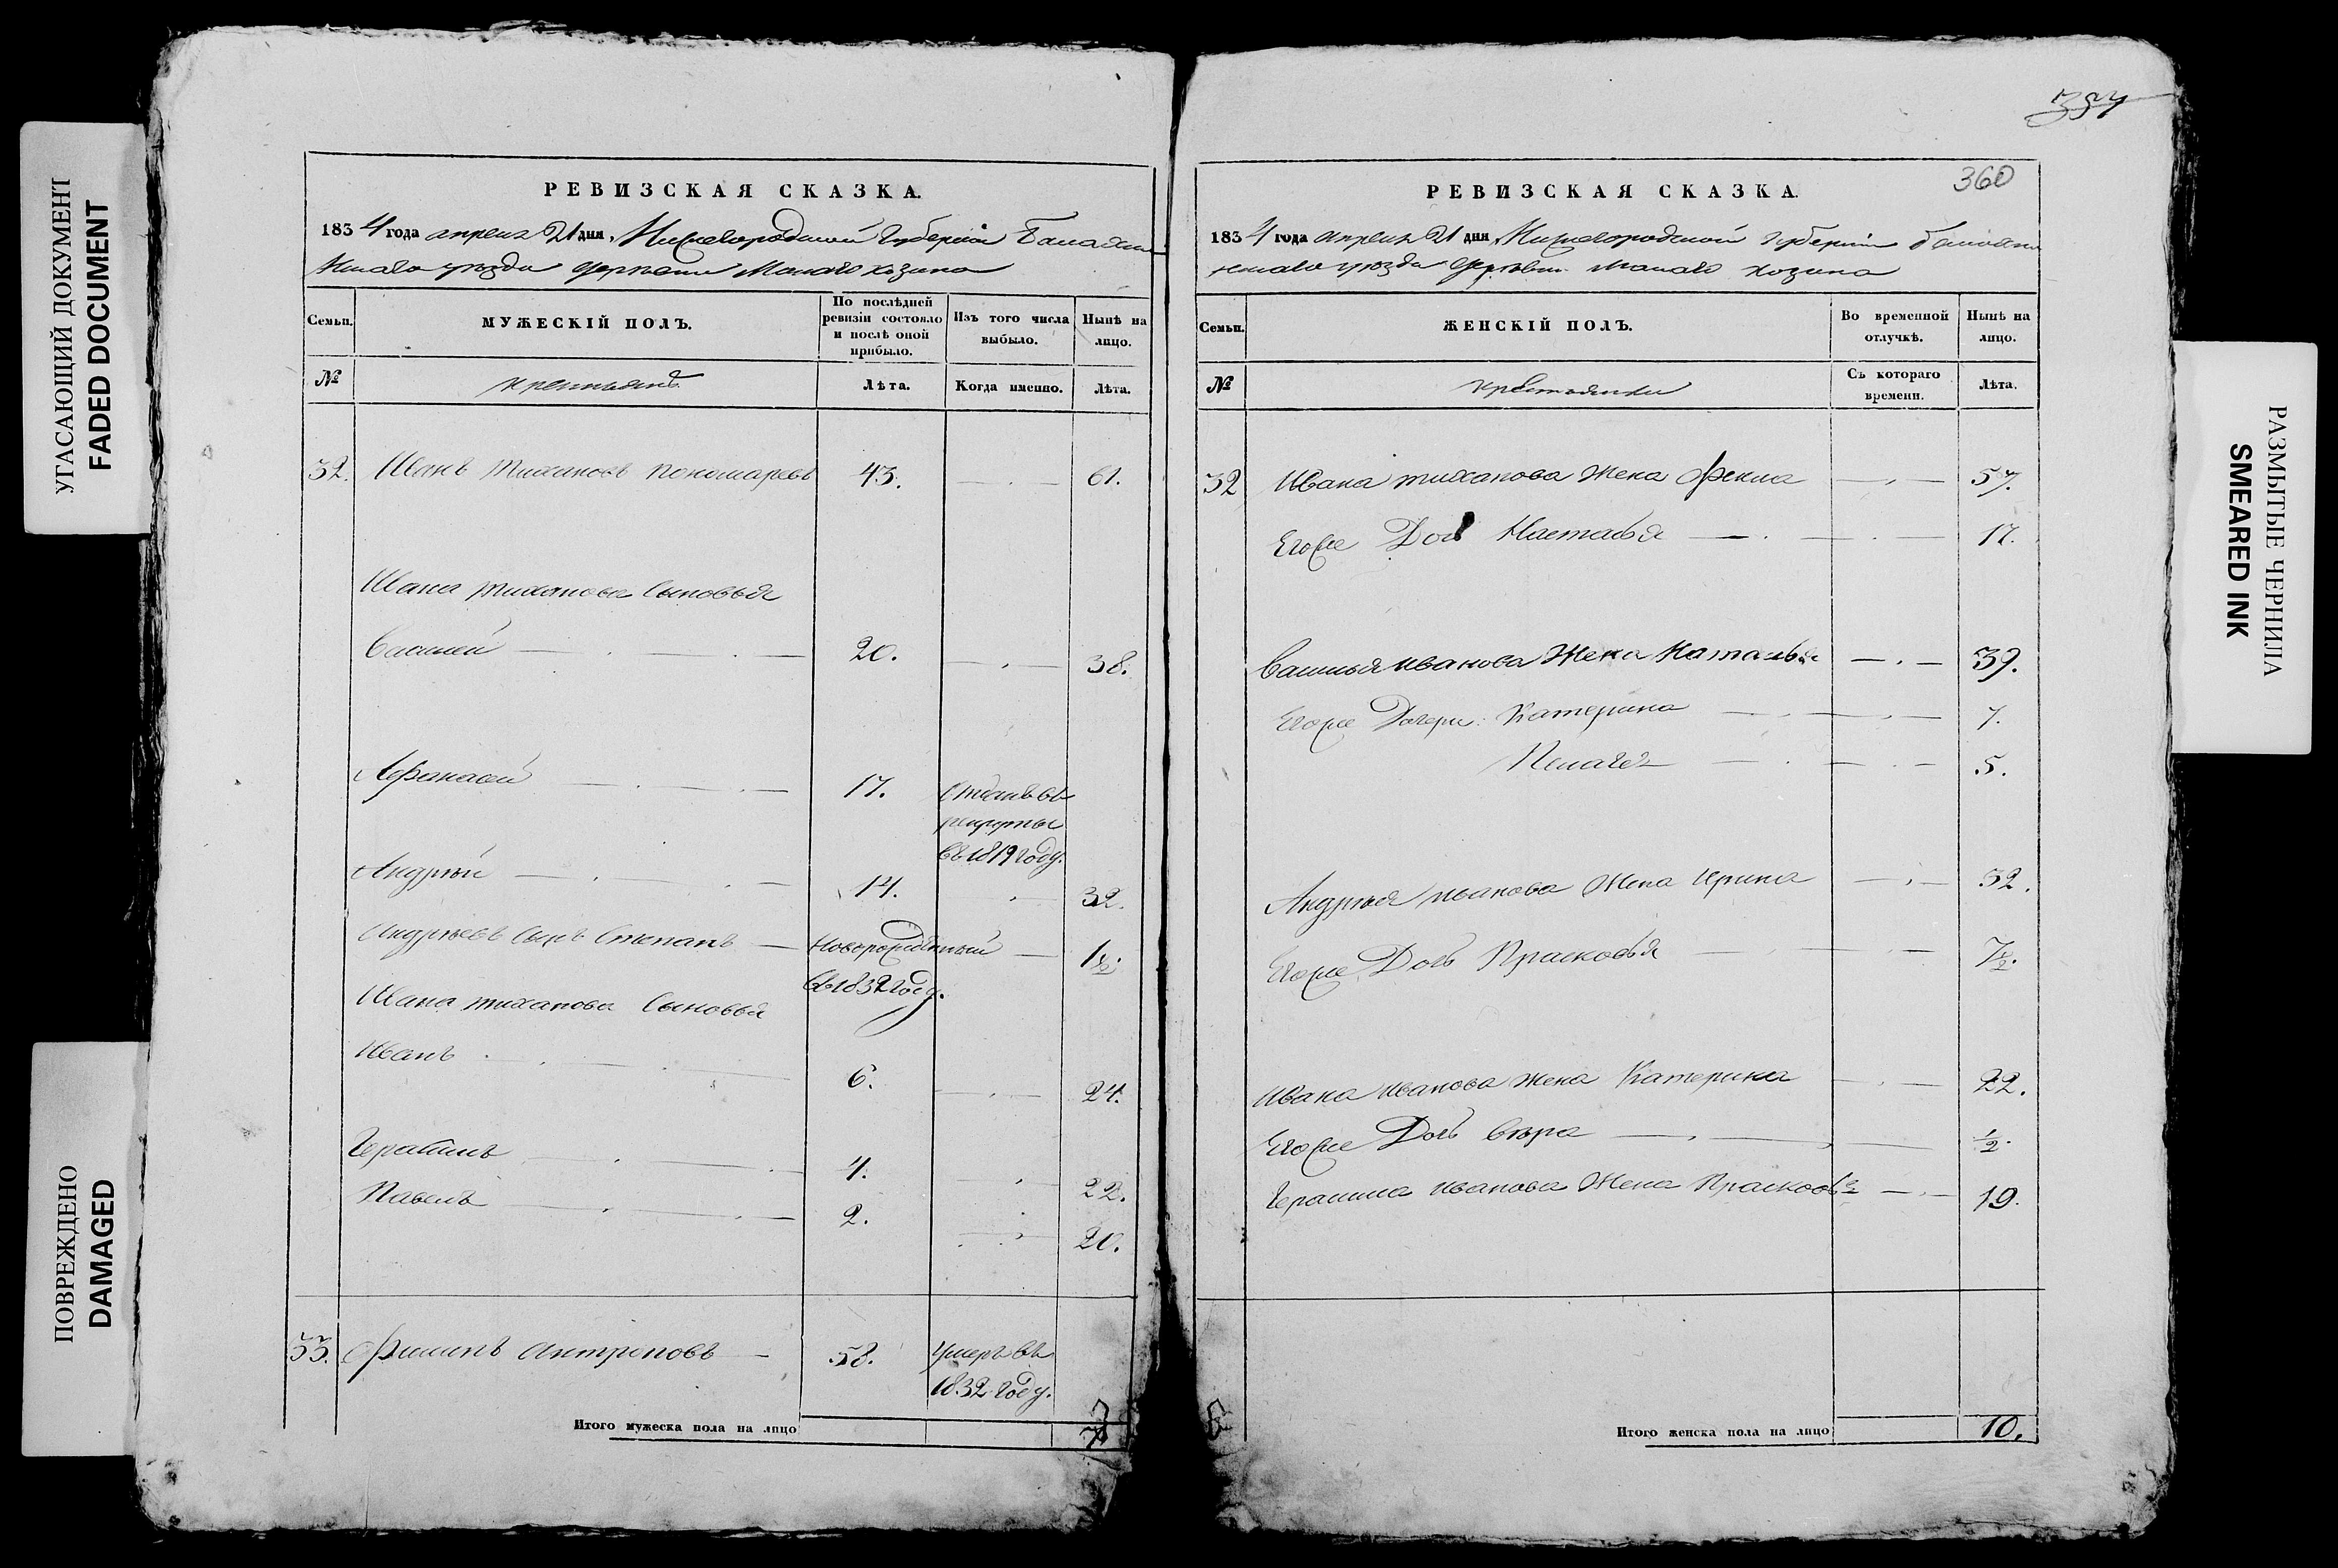 УГАСАЮЩИЙ ДОКУМЕНТ
FADED DOCUMENT
ПОВРЕЖДЕНО
DAMAGED
РЕВИЗСКАЯ СКАЗКА.
1834 года апреля 21 дня, Нижегородской Губернiи Балахнин
скаго уѣзда деревни Малаго Козина
Семьи.
МУЖЕСКIЙ ПОЛЪ.
По послѣдней ревизiи состояло и послѣ оной прибыло.
Изъ того числа выбыло.
Нынѣ на лицо.
№
крестьянъ
Лѣта.
Когда именно.
Лѣта.
32. Иванъ Тихановъ Пономаревъ 43. 61.
Ивана Тиханова Сыновья
Василей 20. 38.
Афонасей 17. Отданъ въ
рекруты
въ 1819 году.
Андрѣй 14. 32.
Андрѣевъ Сынъ Степанъ Новорожденный 1½.
въ 1832 году.
Ивана Тиханова Сыновья
Иванъ 6. 24.
Герасимъ 4. 22.
Павелъ 2. 20.
33. Филипъ Антроповъ 58. Умеръ въ
1832 году.
Итого мужеска пола на лицо 7
357
360
РЕВИЗСКАЯ СКАЗКА.
1834 года апреля 21 дня, Нижегородской Губернiи Балахнин
скаго уѣзда деревни Малаго Козина
Семьи.
ЖЕНСКIЙ ПОЛЪ.
Во временной отлучкѣ.
Нынѣ на лицо.
№
крестьянки
Съ котораго времени.
Лѣта.
32 Ивана Тиханова Жена Фекла 57.
Егоже Дочь Настасья 17.
Василья Иванова Жена Наталья 39.
Егоже Дочери: Катерина 7.
Пелагея 5.
Андрѣя Иванова Жена Ирина 32.
Егоже Дочь Прасковья 7½.
Ивана Иванова жена Катерина 22.
Егоже Дочь Вѣра ½.
Герасима Иванова Жена Прасковья 19.
Итого женска пола на лицо 10.
РАЗМЫТЫЕ ЧЕРНИЛА
SMEARED INK